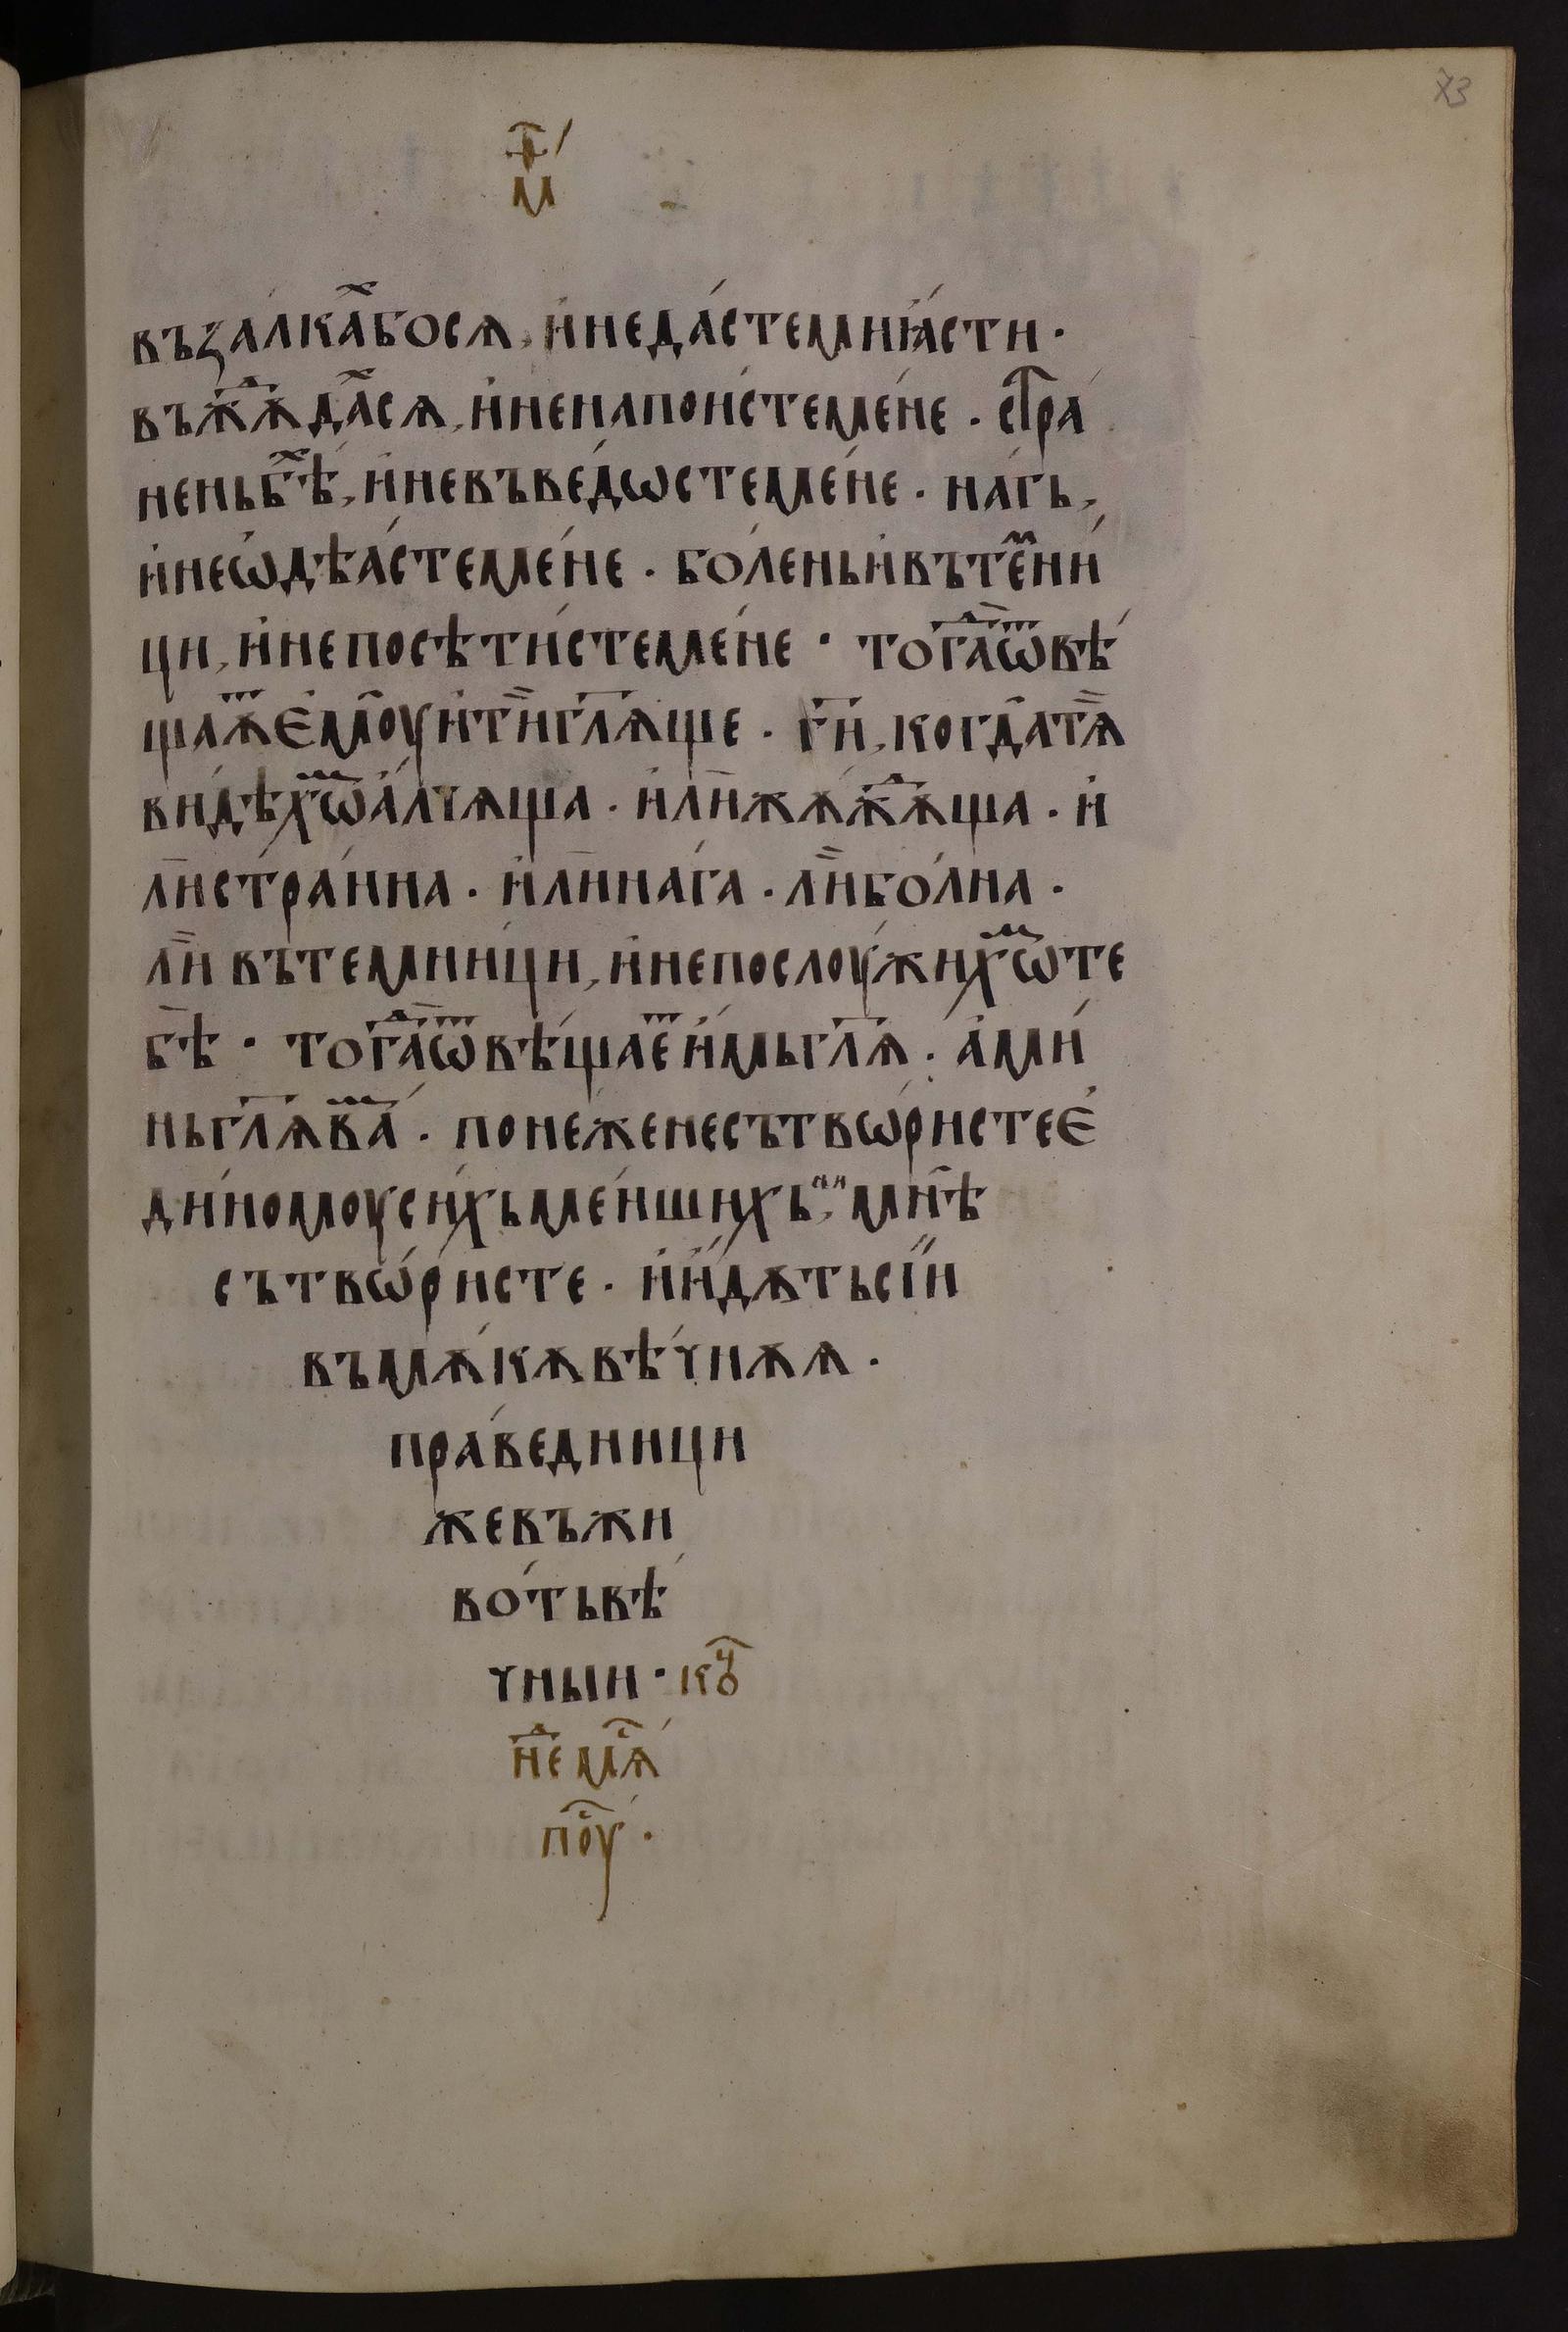 73
м҃т
възалка̾хбосѧ, ѝнеда́стемиꙗ́сти ·
въжѧ́да̾хсѧ, ѝненапои́стеме́не · стра́
неньбѣ̾х, ѝневъве́дѡстеме́не · на́гь,
ѝнеѡ҆дѣа́стеме́не · бо́леньи҆вътемⷨни́
ци, ѝнепосѣти́стеме́не · тогдⷣаѿвѣ́
щаѧⷮє҆моуи҆ти҄гл҃ѧще · гⷭ҇и, когда̀тѧ̀
ви́дѣхѡⷨа҆́лчѧща · и҆лѝжѧ́жⷣѧща · и҆
лѝстра́нна · и҆лѝна́га · лѝбо́лна ·
лѝ вътемни́ци, ѝнепослоу́жихѡⷨте
бѣ̀ · тогдⷣаѿвѣ́щаеⷮи҆́мьгл҃ѧ · а҆ми́
ньгл҃ѧваⷨ · поне́женесътвѡ́ристеє҆
ди́номоуси́хьме́ншихь, мнѣ̀
сътвѡ́ристе · ѝи҆́дѫтьсі́и
въмѫ́кѫвѣ́чнѫѧ ·
пра́ведници
жевъжи
во́тьвѣ́
чныи · коⷰ҇
нⷣемѧⷭ҇
поⷭ҇у ·